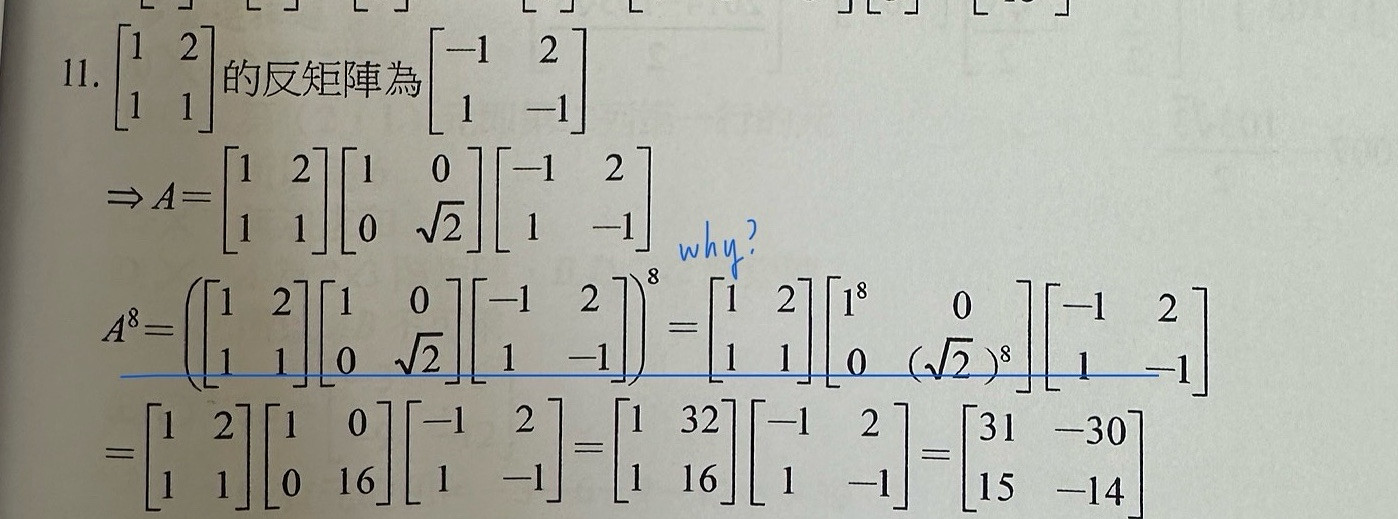 11. [1 2; 1 1] 的反矩陣為 [−1 2; 1 −1]
⇒ A = [1 2; 1 1] [1 0; 0 √2] [−1 2; 1 −1]
why?
A⁸ = ([1 2; 1 1] [1 0; 0 √2] [−1 2; 1 −1])⁸ = [1 2; 1 1] [1⁸ 0; 0 (√2)⁸] [−1 2; 1 −1]
= [1 2; 1 1] [1 0; 0 16] [−1 2; 1 −1] = [1 32; 1 16] [−1 2; 1 −1] = [31 −30; 15 −14]